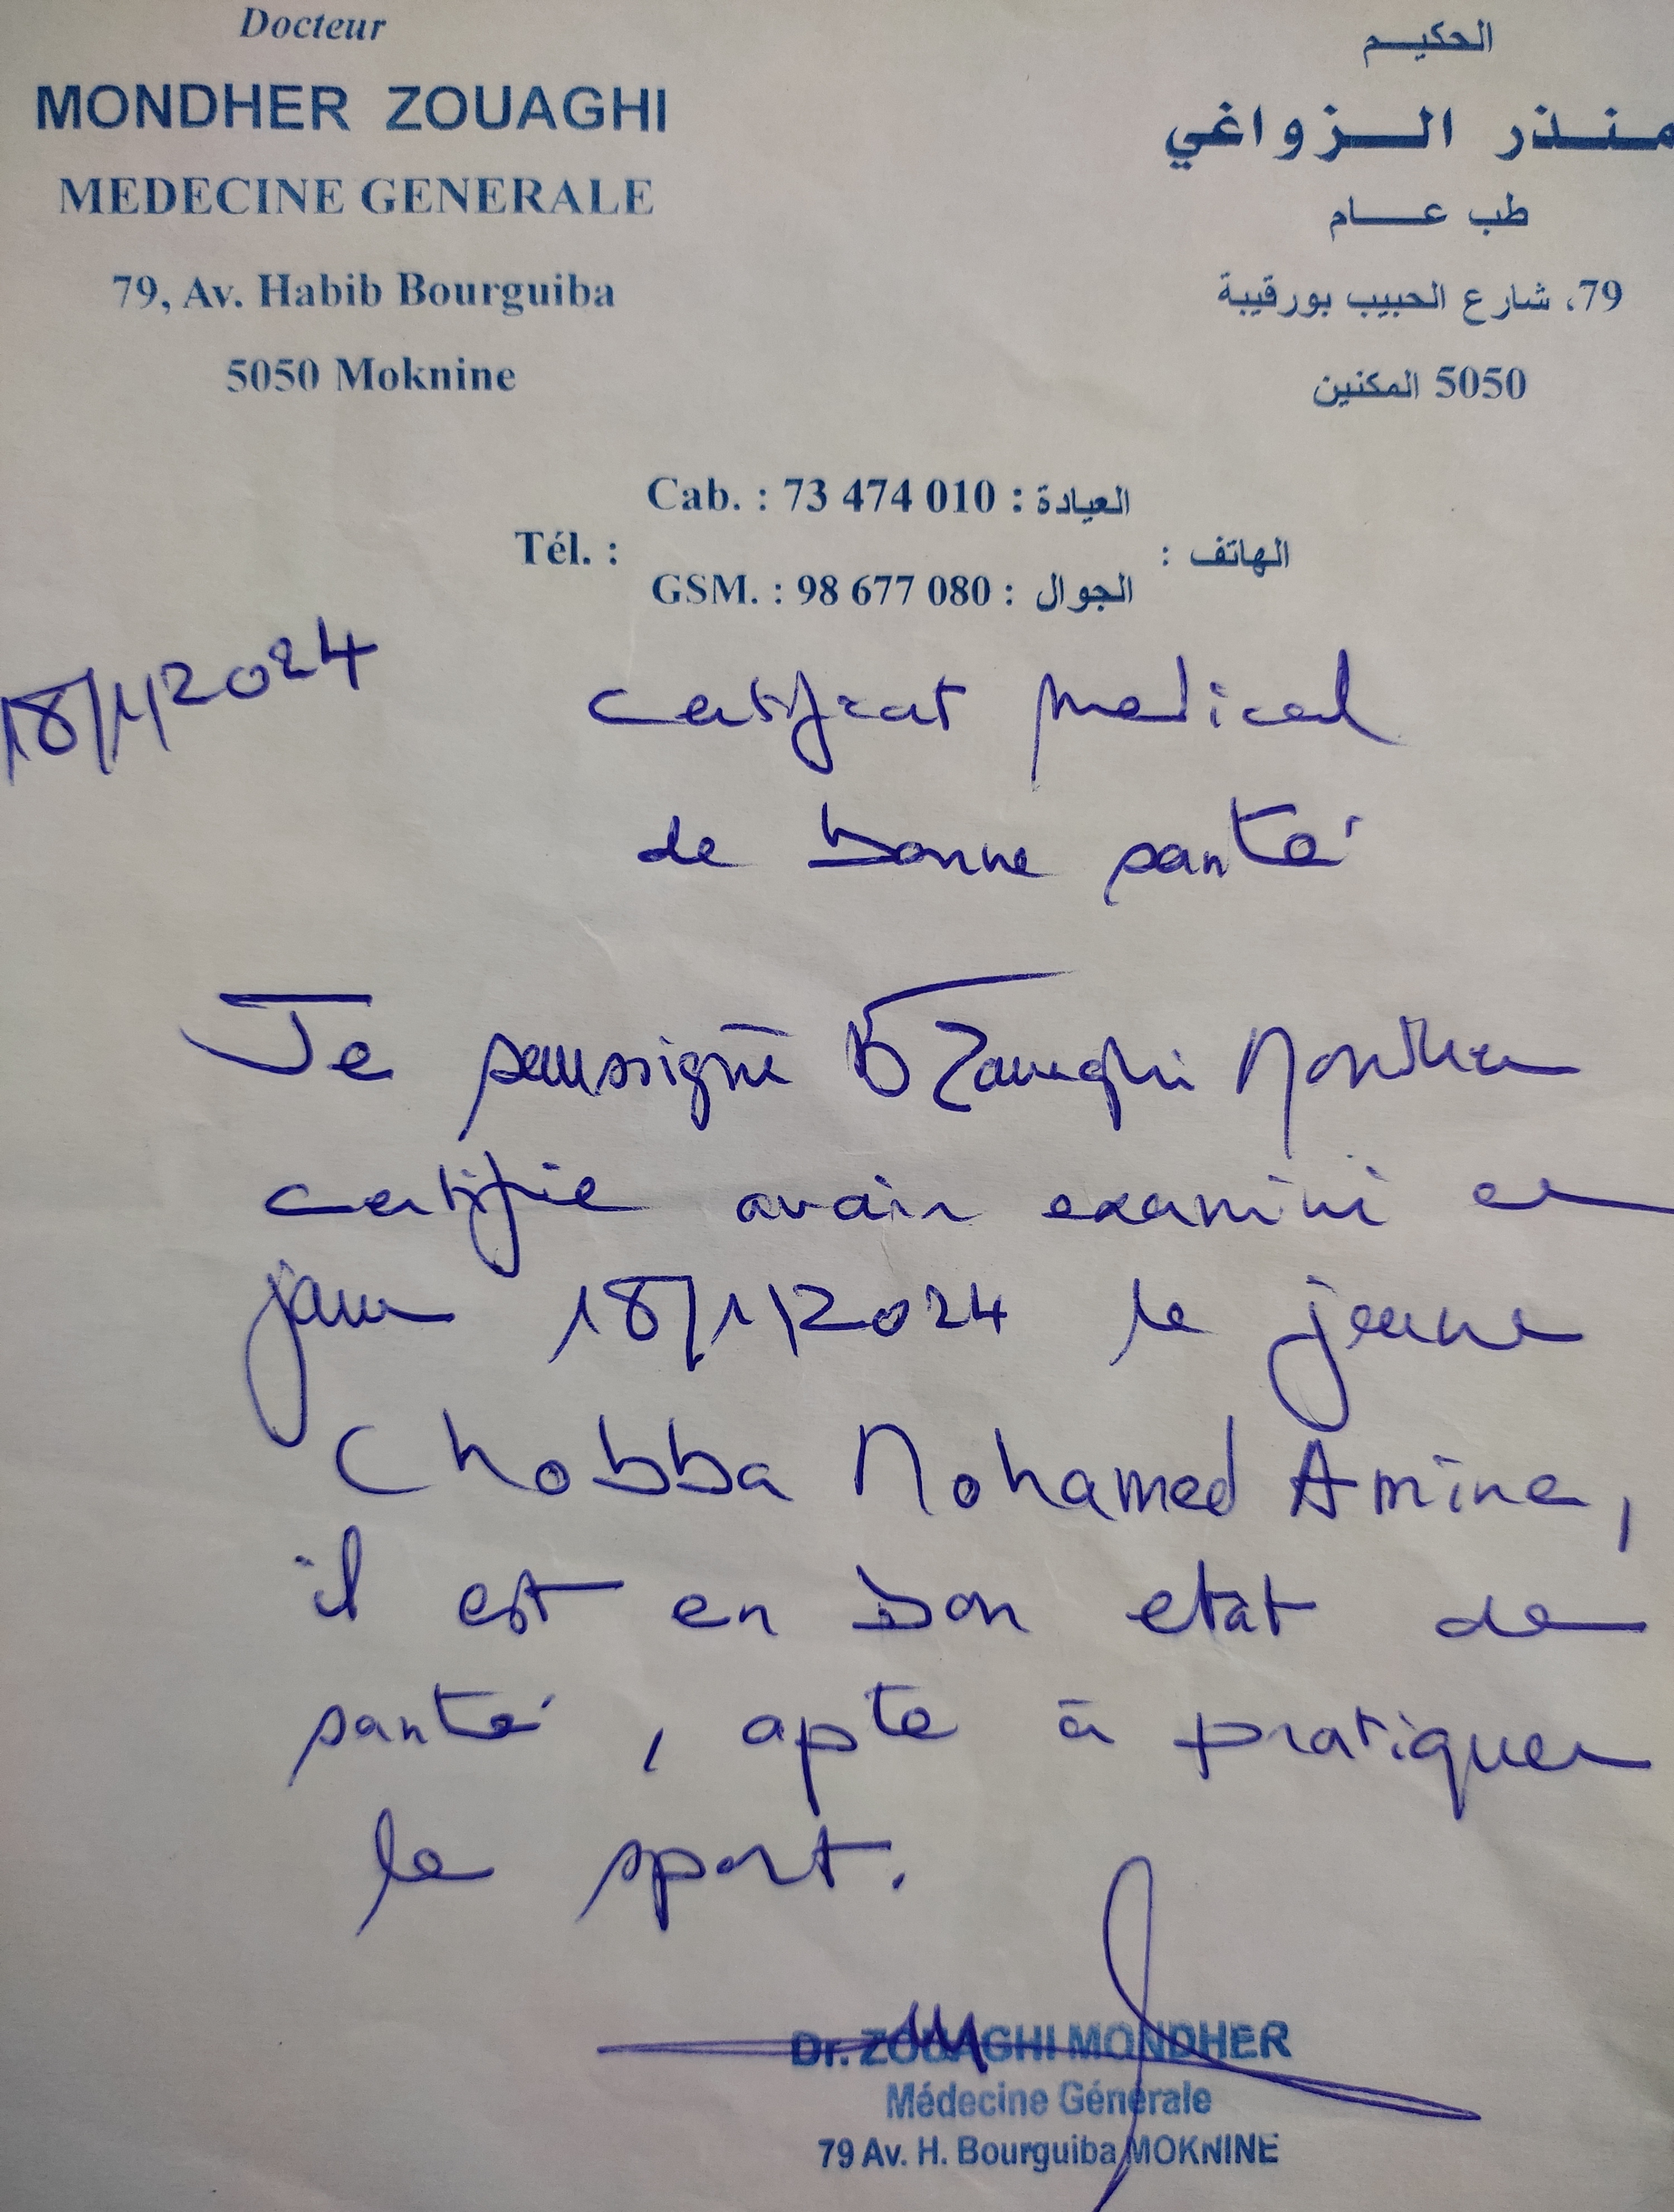 Docteur
MONDHER ZOUAGHI
MEDECINE GENERALE
79, Av. Habib Bourguiba
5050 Moknine
الحكيم
منذر الزواغي
طب عام
79، شارع الحبيب بورقيبة
5050 المكنين
Cab. : 73 474 010 : العيادة
Tél. : الهاتف :
GSM. : 98 677 080 : الجوال
18/1/2024
certificat medical
de bonne santé
Je soussigné Dr Zouaghi Mondher
certifie avoir examiné ce
jour 18/1/2024 le jeune
Chobba Mohamed Amine,
il est en bon etat de
santé, apte à pratiquer
le sport.
Dr. ZOUAGHI MONDHER
Médecine Générale
79 Av. H. Bourguiba MOKNINE